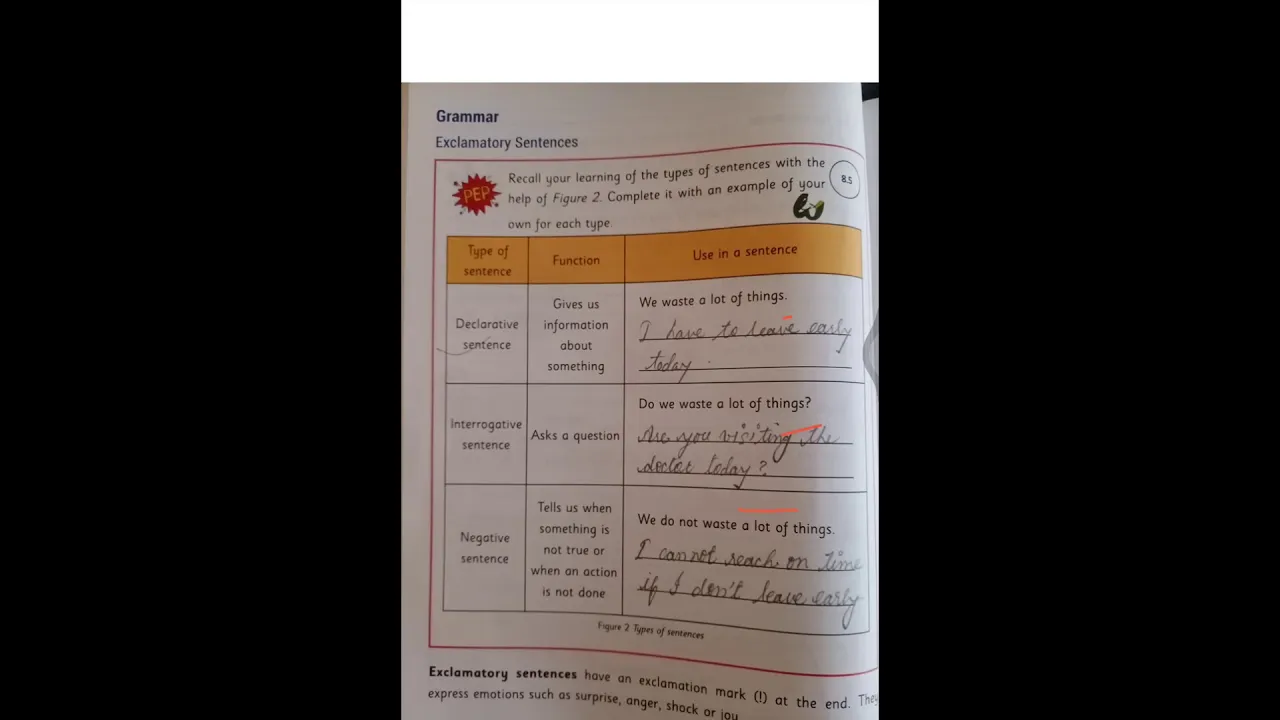 Grammar
Exclamatory Sentences
PEP
Recall your learning of the types of sentences with the
help of Figure 2. Complete it with an example of your
own for each type.
8.5
Type of
sentence
Function
Use in a sentence
Declarative
sentence
Gives us
information
about
something
We waste a lot of things.
I have to leave early
today.
Interrogative
sentence
Asks a question
Do we waste a lot of things?
Are you visiting the
doctor today?
Negative
sentence
Tells us when
something is
not true or
when an action
is not done
We do not waste a lot of things.
I cannot reach on time
if I don't leave early
Figure 2 Types of sentences
Exclamatory sentences have an exclamation mark (!) at the end. They
express emotions such as surprise, anger, shock or joy